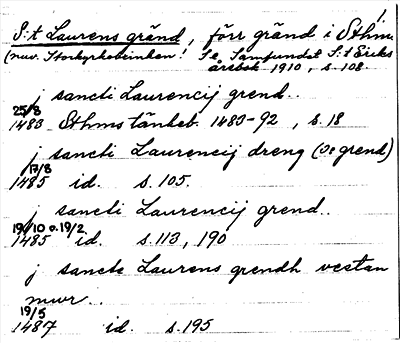 1.
S:t Laurens gränd, förr gränd i Sthm.
(nuv. Storkyrkobrinken! Se Samfundet S:t Eriks
årsbok 1910, s. 108.
j sancti Laurencij grend..
25/8
1483 Sthms tänkeb. 1483-92, s. 18
j sancti Laurencij dreng (se grend)
17/8
1485 id. s. 105.
j sancti Laurencij grend..
19/10 o. 19/2
1485 id. s. 113, 190
j sancte Laurens grendh vestan
mwr..
19/5
1487 id. s. 195